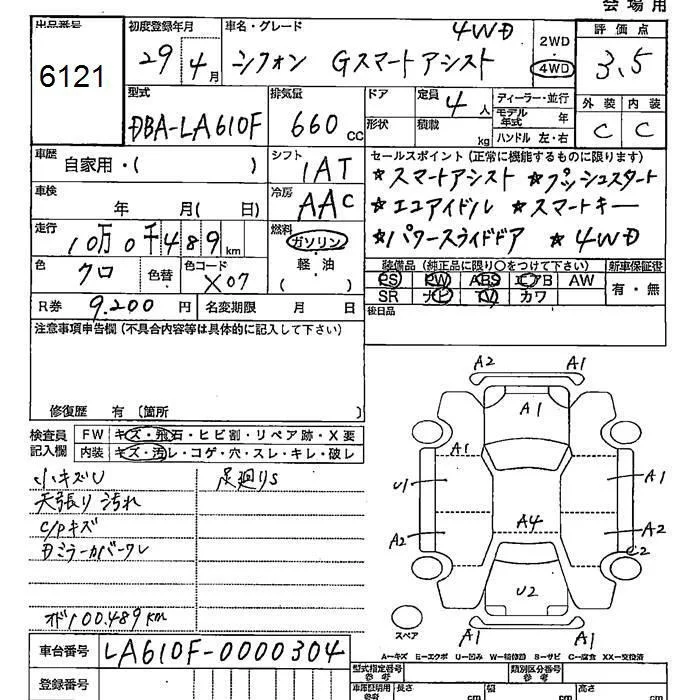 会場用
出品番号 初度登録年月 車名・グレード 4WD 2WD 評価点
6121 29年4月 シフォン Gスマートアシスト 4WD 3.5
型式 排気量 ドア 定員 4人 ディーラー・並行 外装 内装
DBA-LA610F 660cc 形状 積載 kg モデル年式 年 C C
ハンドル 左・右
車歴 自家用・( ) シフト 1AT セールスポイント(正常に機能するものに限ります)
★スマートアシスト ★プッシュスタート
車検 年 月( 日) 冷房 AAC ★エコアイドル ★スマートキー
走行 10万0千489km 燃料 ガソリン ★パワースライドドア ★4WD
軽・油
( )
色 クロ 色替 色コード X07 装備品(純正品に限り○をつけて下さい) 新車保証書
PS PW ABS エアB AW 有・無
R券 9.200円 名変期限 月 日 SR ナビ TV カワ
注意事項申告欄(不具合内容等は具体的に記入して下さい) 後日品
修復歴 有 〔箇所 〕
検査員 FW キズ・飛石・ヒビ割・リペア跡・X要
記入欄 内装 キズ・汚レ・コゲ・穴・スレ・キレ・破レ
小キズU 足廻りS
天張り汚れ
C/Pキズ
Dミラーカバーワレ
オド100.489km
A2 A1
A1
A1 A1
U1
A2 A4 A2
C2
U2
A1
スペア
A-キズ E-エクボ U-凹み W-補修跡 B-サビ C-腐食 XX-交換済
車台番号 LA610F-0000304
型式指定番号 参考 類別区分番号 参考
登録番号 車庫証明用 参考 長さ cm 幅 cm 高さ cm